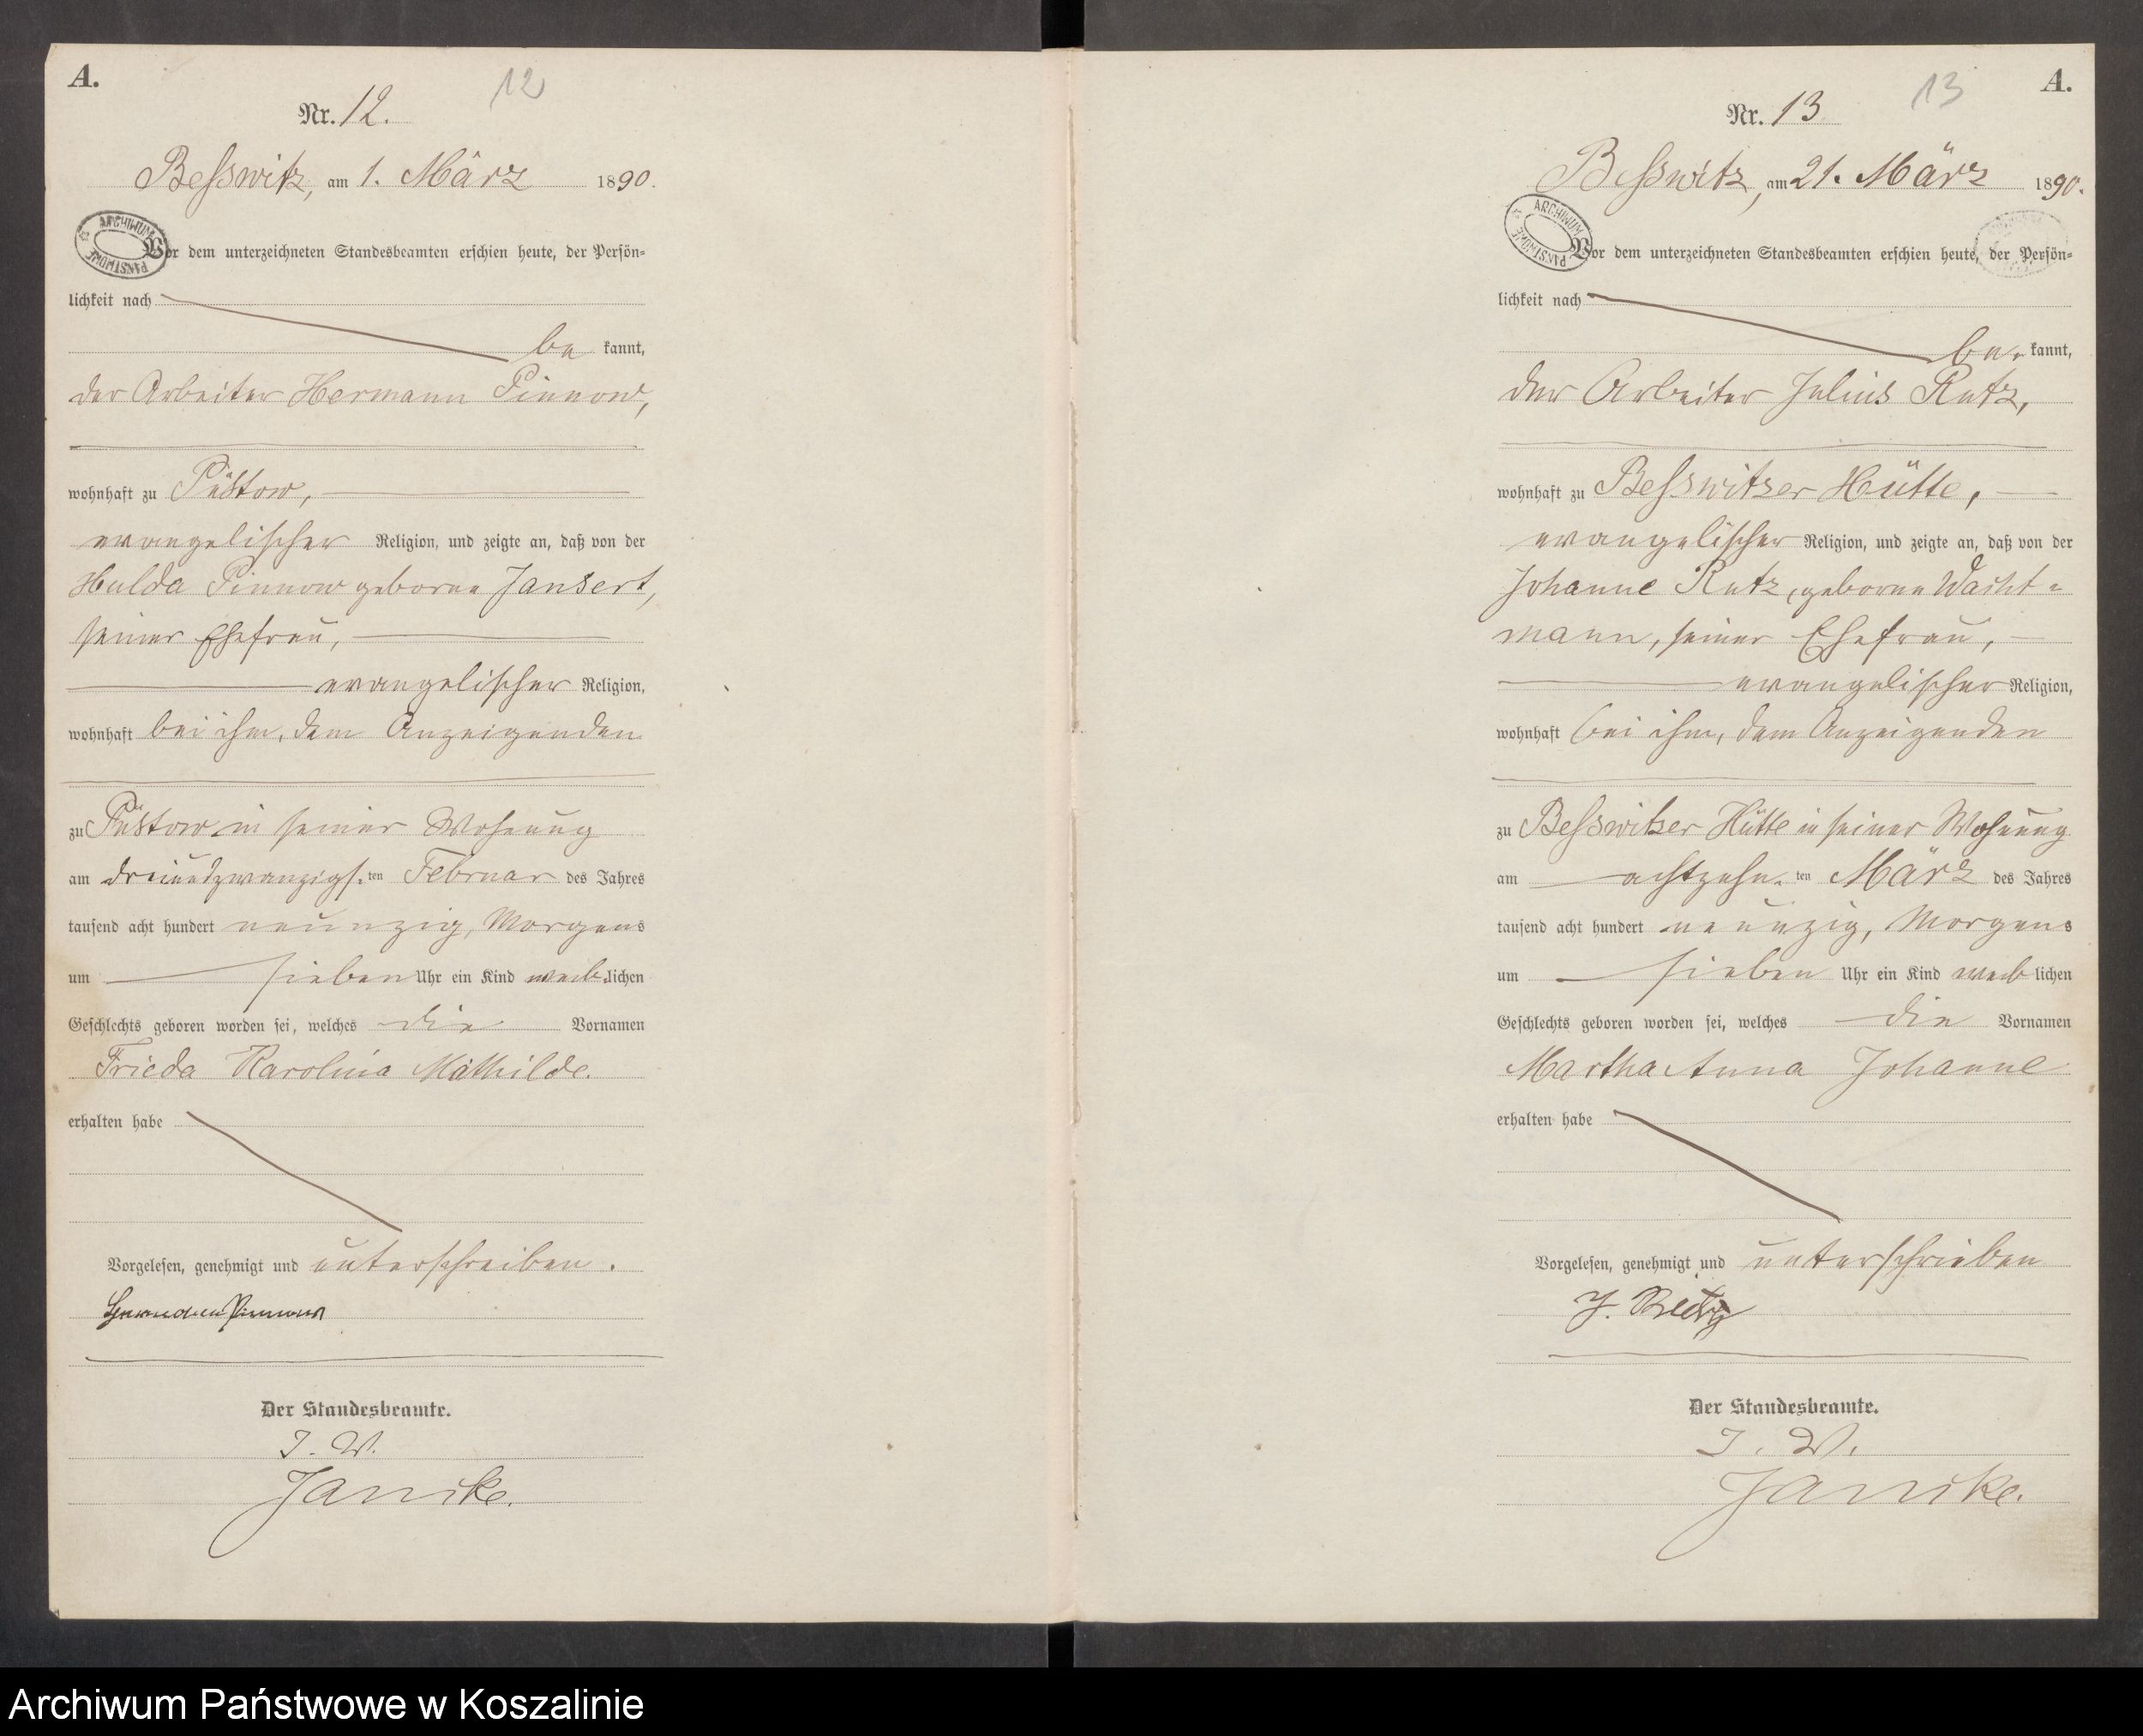 A.
12
Nr. 12.
Beſswitz, am 1. März 1890.
ARCHIWUM PAŃSTWOWE
Vor dem unterzeichneten Standesbeamten erſchien heute, der Perſön-
lichkeit nach
be kannt,
der Arbeiter Hermann Pinnow,
wohnhaft zu Püstow,
evangelischer Religion, und zeigte an, daß von der
Hulda Pinnow geborne Jansert,
seiner Ehefrau,
evangelischer Religion,
wohnhaft bei ihm, dem Anzeigenden
zu Püstow in seiner Wohnung
am dreiundzwanzigs-ten Februar des Jahres
tauſend acht hundert neunzig, Morgens
um sieben Uhr ein Kind weib-lichen
Geſchlechts geboren worden ſei, welches die Vornamen
Frieda Karolina Mathilde.
erhalten habe
Vorgeleſen, genehmigt und unterschreiben.
Hermann Pinnow
Der Standesbeamte.
J. V.
Janike.
A.
13
Nr. 13
Beſswitz, am 21. März 1890.
ARCHIWUM PAŃSTWOWE
Vor dem unterzeichneten Standesbeamten erſchien heute, der Perſön-
lichkeit nach
be- kannt,
der Arbeiter Julius Retz,
wohnhaft zu Beſswitzer Hütte,
evangelischer Religion, und zeigte an, daß von der
Johanne Retz, geborne Wacht-
mann, seiner Ehefrau,
evangelischer Religion,
wohnhaft bei ihm, dem Anzeigenden
zu Beſswitzer Hütte in seiner Wohnung
am achtzehn-ten März des Jahres
tauſend acht hundert neunzig, Morgens
um sieben Uhr ein Kind weib-lichen
Geſchlechts geboren worden ſei, welches die Vornamen
Martha Anna Johanne
erhalten habe
Vorgeleſen, genehmigt und unterschrieben
J. Retz
Der Standesbeamte.
J. V.
Janike.
Archiwum Państwowe w Koszalinie